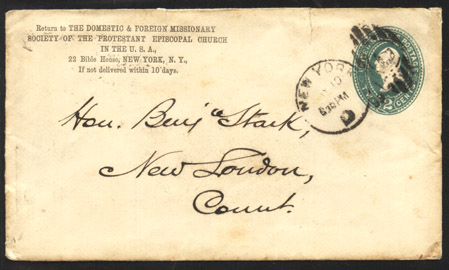 Return to THE DOMESTIC & FOREIGN MISSIONARY
SOCIETY OF THE PROTESTANT EPISCOPAL CHURCH
IN THE U. S. A.,
22 Bible House, NEW YORK, N. Y.,
If not delivered within 10 days.
NEW YORK
630 PM
D
POSTAGE
2 CENTS
Hon. Benjⁿ Stark,
New London,
Connt.